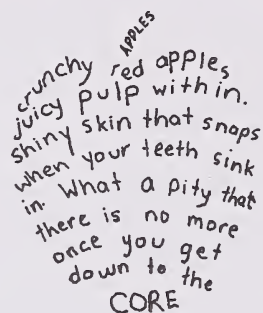 APPLES
crunchy red apples
juicy pulp within.
shiny skin that snaps
when your teeth sink
in. What a pity that
there is no more
once you get
down to the
CORE